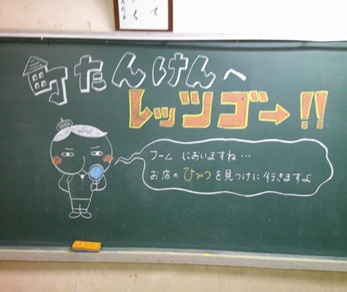 町たんけんへ
レッツゴー!!
フーム においますね…
お店のひみつを見つけに行きますよ